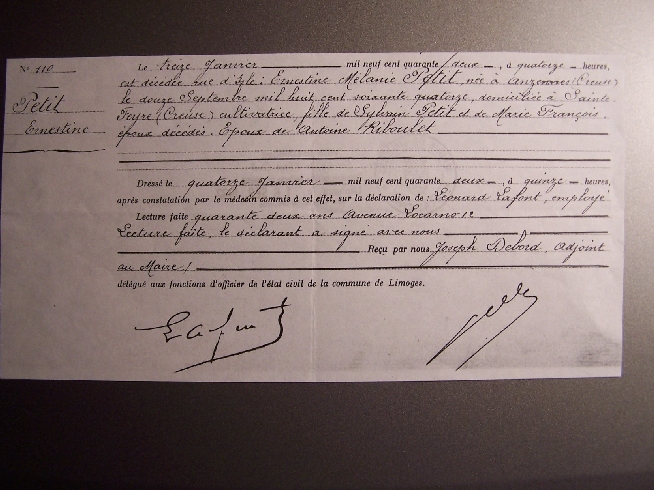 N° 110
Petit
Ernestine
Le treize Janvier mil neuf cent quarante deux, à quatorze heures,
est décédée rue d'Isle: Ernestine Mélanie Petit, née à (Creuse)
le douze Septembre mil huit cent soixante quatorze, domiciliée à Sainte
Feyre (Creuse) cultivatrice, fille de Sylvain Petit et de Marie François,
époux décédés. Epoux de Antoine Riboulet
Dressé le quatorze Janvier mil neuf cent quarante deux, à quinze heures,
après constatation par le médecin commis à cet effet, sur la déclaration de: Léonard Lafont, employé
Lecture faite quarante deux ans Avenue Locarno 12
Lecture faite, le déclarant a signé avec nous
Reçu par nous, Joseph Debord, Adjoint
au Maire/
délégué aux fonctions d'officier de l'état civil de la commune de Limoges.